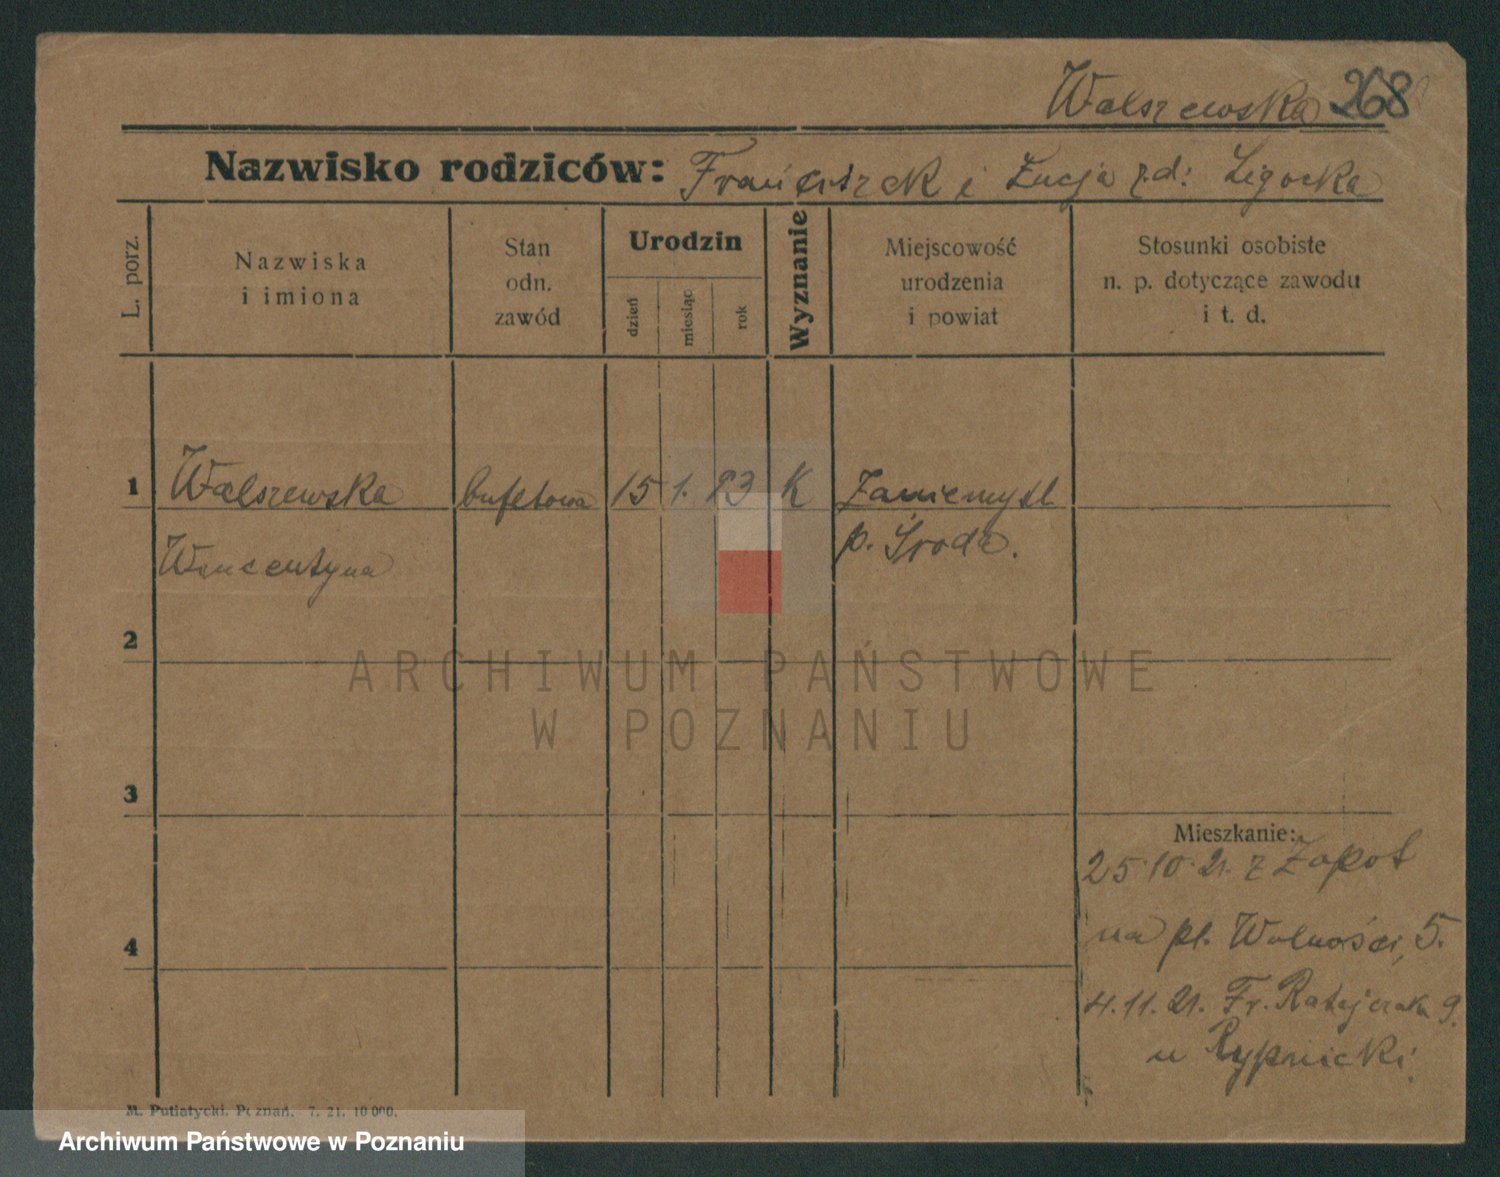 Walszewska 268
Nazwisko rodziców: Franciszek i Łucja z.d: Ligocka
L. porz.
Nazwiska
i imiona
Stan
odn.
zawód
Urodzin
dzień
miesiąc
rok
Wyznanie
Miejscowość
urodzenia
i powiat
Stosunki osobiste
n. p. dotyczące zawodu
i t. d.
1 Walszewska bufetowa 15 1. 93 K Zaniemyśl
Wincentyna p. Środa.
2
ARCHIWUM PAŃSTWOWE
W POZNANIU
3
Mieszkanie:
25.10.21. z Zopot
na pl. Wolności, 5.
4
4.11.21. Fr. Ratajczaka 9.
u Rypnicki.
M. Putiatycki. Poznań. 7. 21. 10 000.
Archiwum Państwowe w Poznaniu